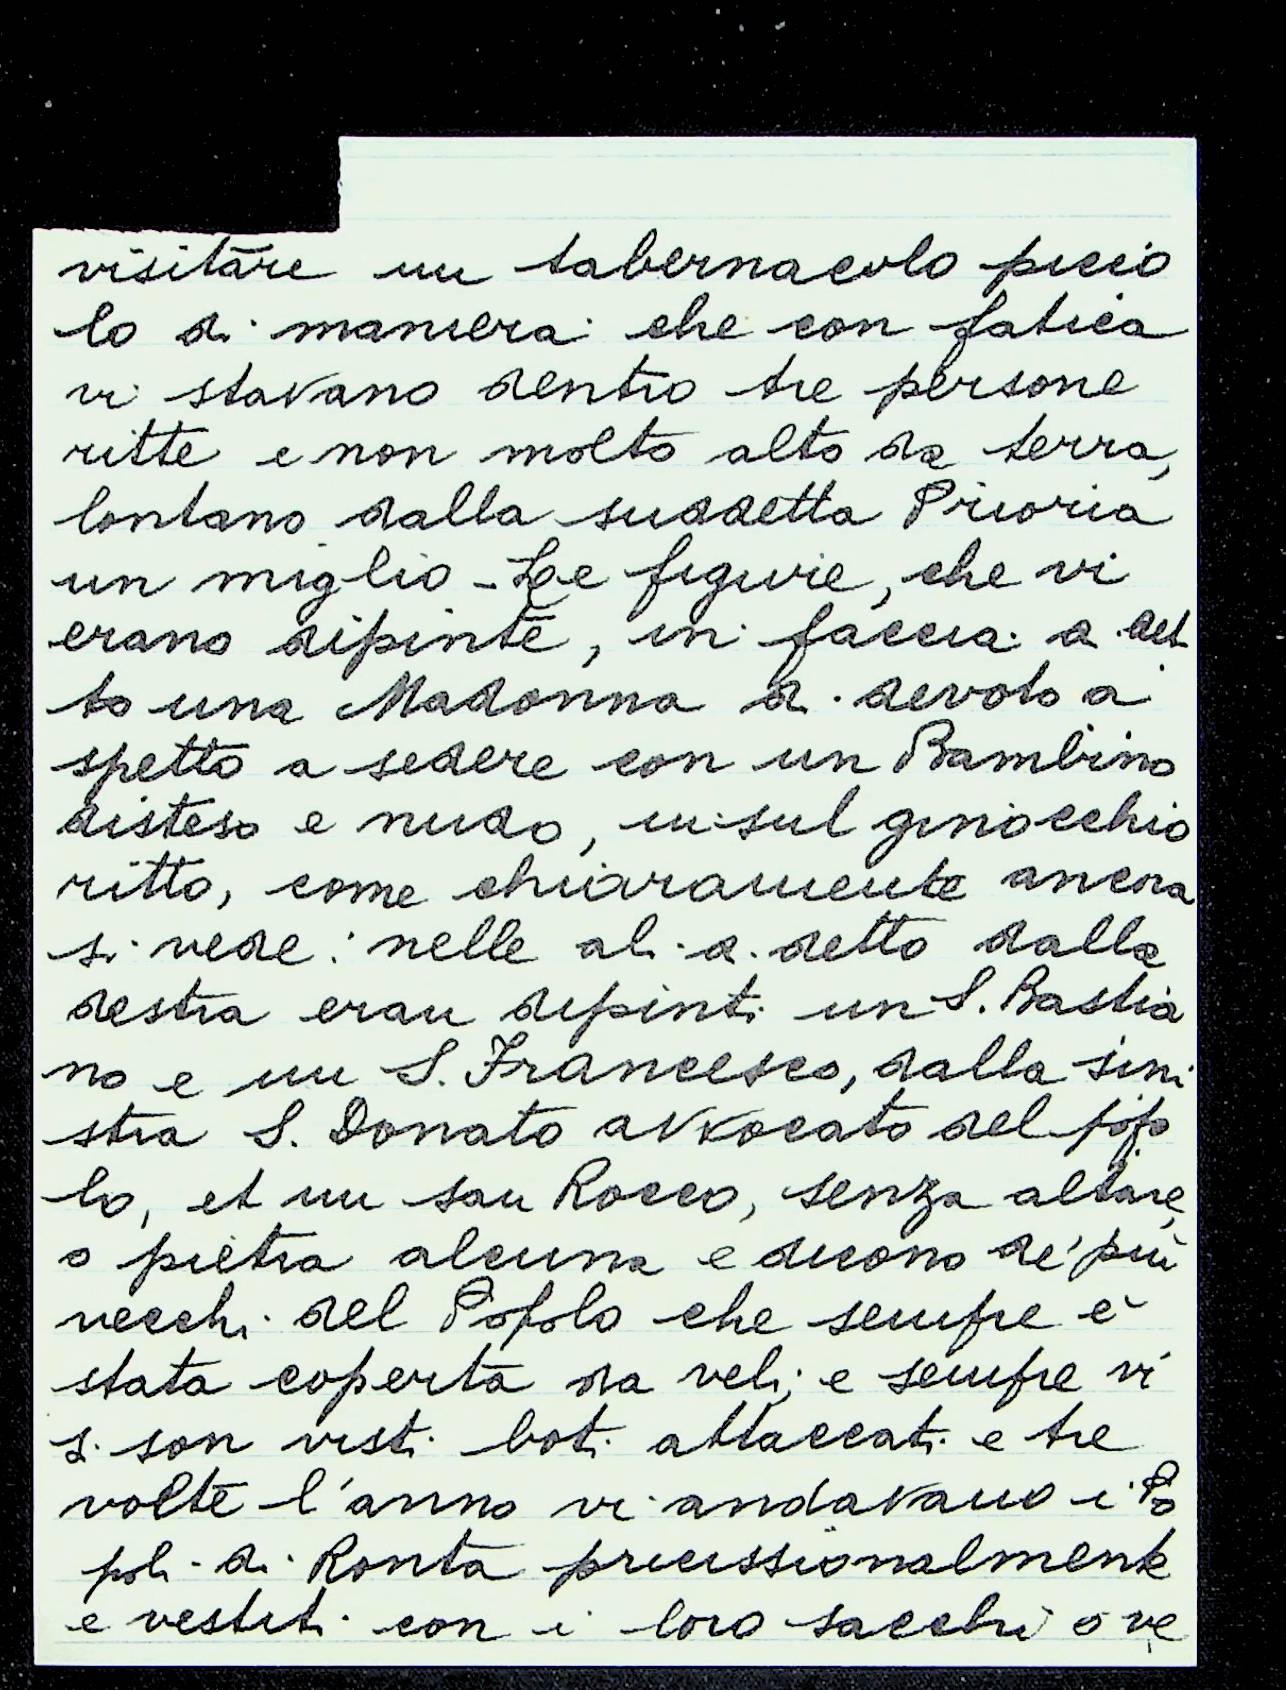 visitare un tabernacolo piccio
lo di maniera che con fatica
vi stavano dentro tre persone
ritte e non molto alto da terra,
lontano dalla suddetta Prioria
un miglio - Le figure, che vi
erano dipinte, in faccia a det
to una Madonna di devoto a
spetto a sedere con un Bambino
disteso e nudo, in sul ginocchio
ritto, come chiaramente ancora
si vede: nelle ali di detto dalla
destra eran dipinti un S. Bastia
no e un S. Francesco, dalla sini
stra S. Donato avvocato del pop
lo, et un san Rocco, senza altare,
o pietra alcuna e dicono de' più
vecchi del Popolo che sempre è
stata coperta da veli; e sempre vi
si son visti boti attaccati e tre
volte l'anno vi andavano i Po
poli di Ronta precissionalmente
e vestiti con i loro sacchi ove